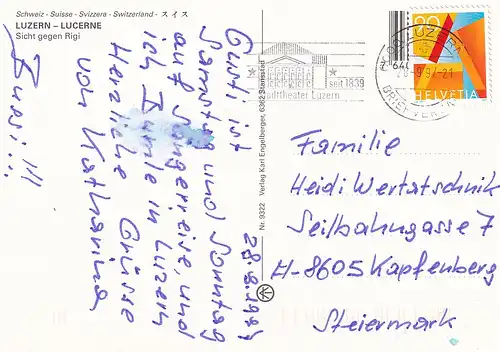 Schweiz - Suisse - Svizzera - Switzerland - スイス
LUZERN – LUCERNE
Sicht gegen Rigi
28.9.1997
Gusti ist
Samstag und Sonntag
auf Sängerreise, und
ich Bumle in Luzern
Herzliche Grüsse
von Katharina
Bussi...!!!
Nr. 9322 Verlag Karl Engelberger, 6362 Stansstad
seit 1839
Stadttheater Luzern
LUZERN
BRIEFVER
90
HELVETIA
Familie
Heidi Wertatschnik
Seilbahngasse 7
A-8605 Kapfenberg
Steiermark